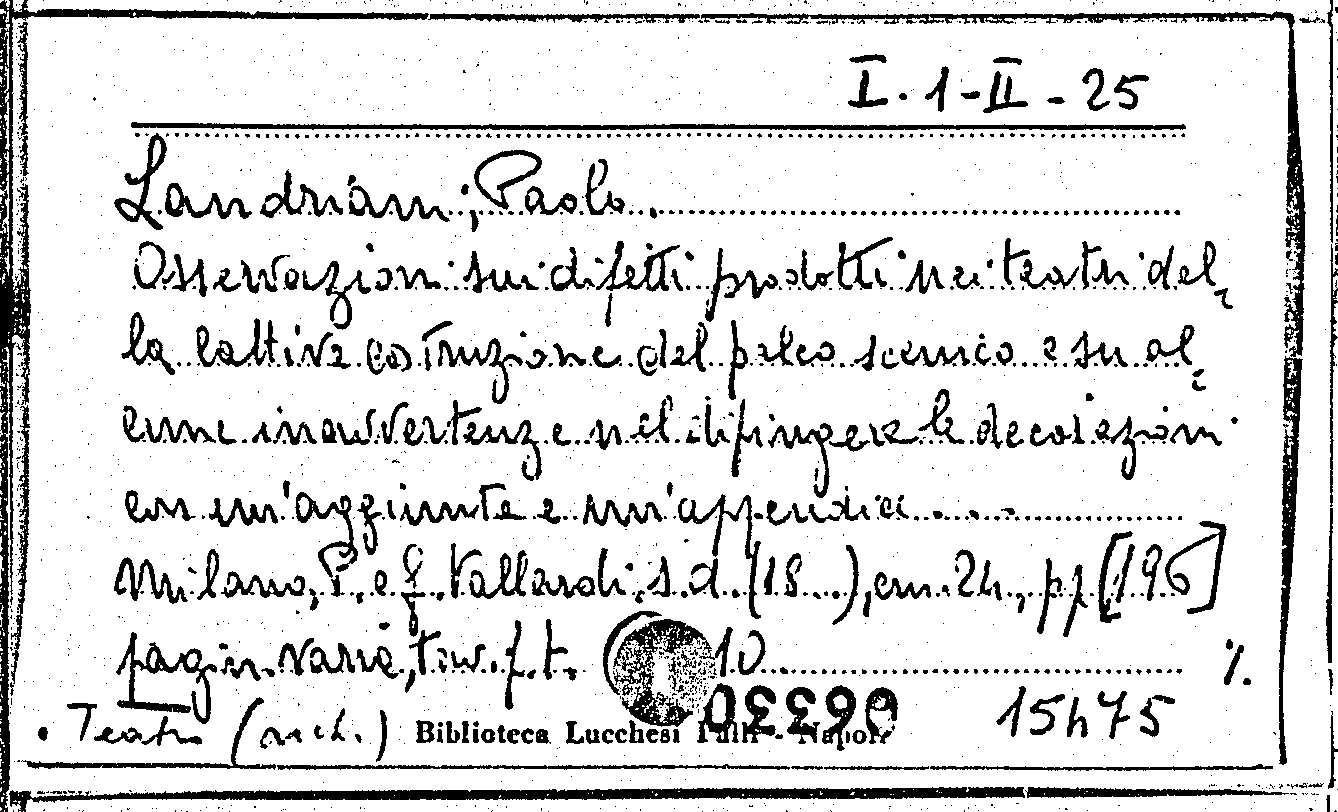 I. 1-II-25
Landriani, Paolo.
Osservazioni sui difetti prodotti nei teatri del-
la cattiva costruzione del palco scenico e su al-
cune inavvertenze nel dipingere le decorazioni
con un'aggiunta e un'appendice....
Milano, P. e G. Vallardi, s.d. (18...), cm. 24, pp. [196]
pagin. varia, tav. f.t. 10 %.
Teatri (arch.) Biblioteca Lucchesi Palli - Napoli 15475